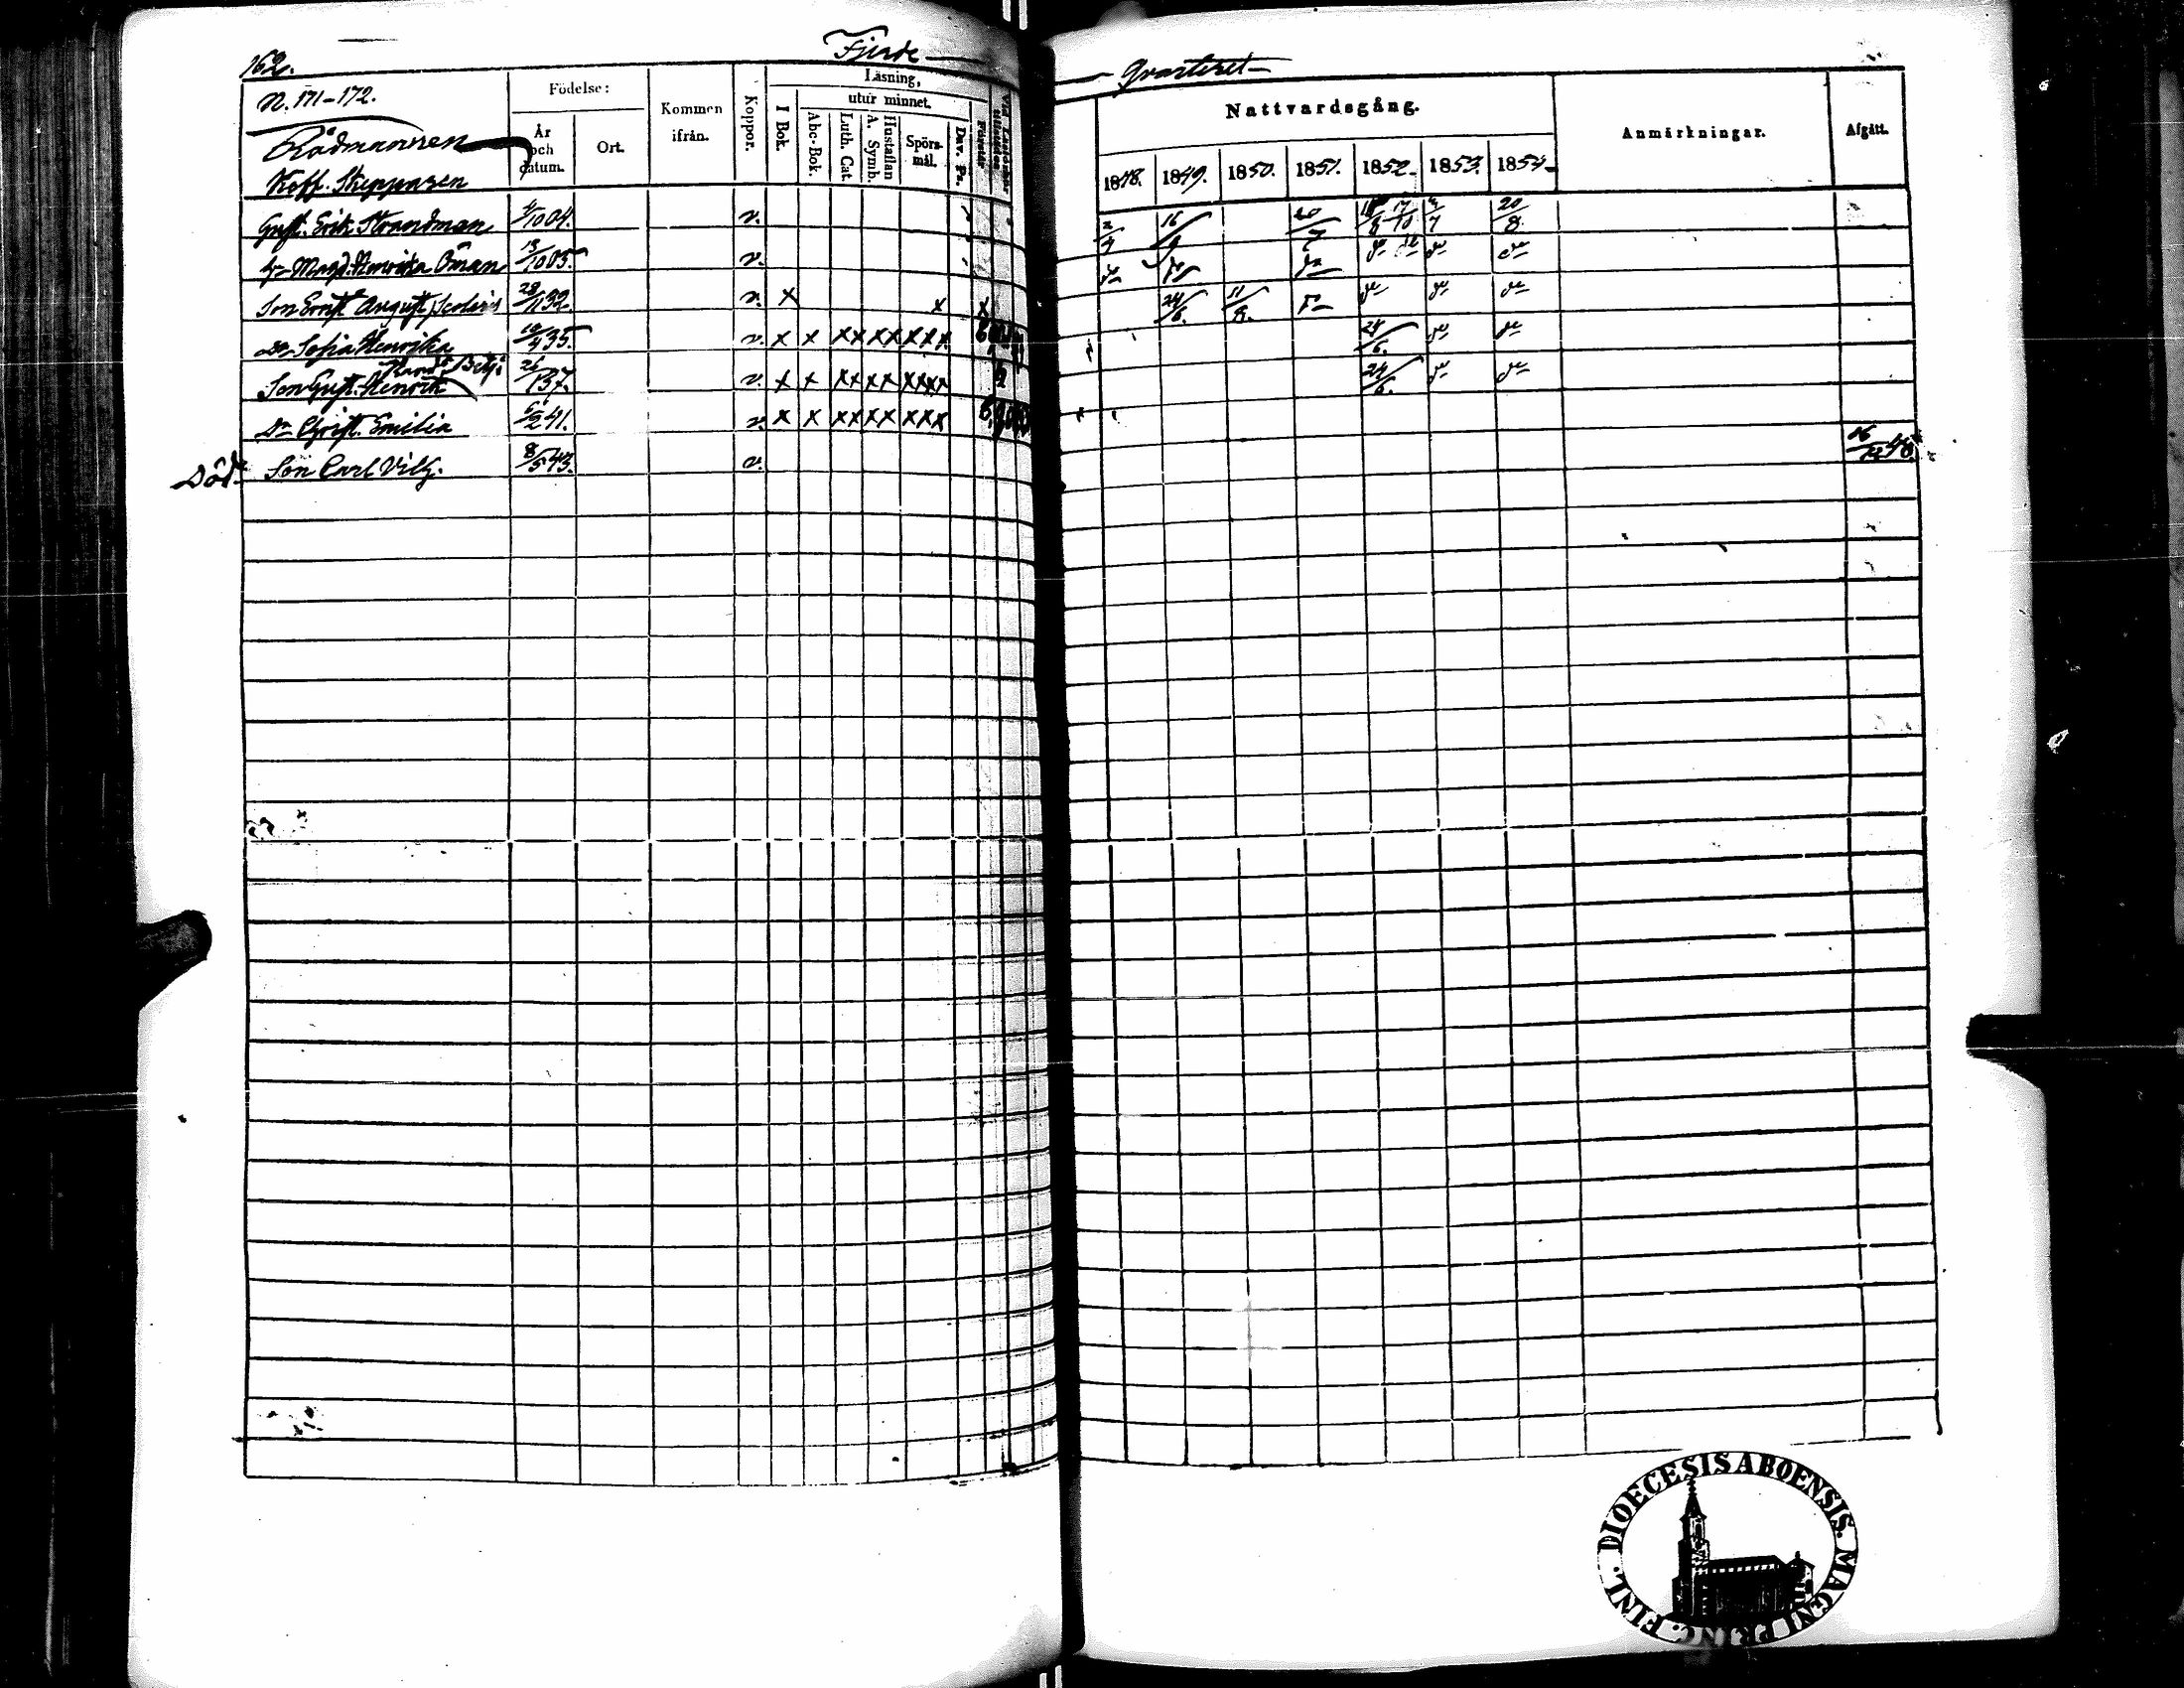 162.
Fjerde
Qvarteret
N. 171-172.
Födelse:
År och datum.
Ort.
Kommen ifrån.
Koppor.
Läsning,
I Bok.
utur minnet.
Abc-Bok.
Luth. Cat.
A. Symb.
Hustaflan
Spörsmål.
Dav. Ps.
Förstår
Nattvardsgång.
1848. 1849. 1850. 1851. 1852. 1853. 1854.
Anmärkningar.
Afgått.
Rådmannen
Koff. Skepparen
Gust. Erik Strandman 4/10 04. v. 2/4 16/9 20/7 17/10 20/8
Magd. Henrika Öman 13/10 05. v. do do do do do do
Son Ernst August 28/11 32. v. x x x 24/6. 11/8. do do do do
Dr Sofia Henrika 10/4 35. v. x x xx xx xxx 24/6. do do
Son Gust. Henrik 26/1 37. v. x x xx xx xxxx 24/6. do do
Dr Christ. Emilia 6/2 41. v. x x xx xx xxx
Död Son Carl Vilh. 8/5 43. v. 16/12 48.
DIOECESIS ABOENSIS. MAGNI PRINC. FINL.